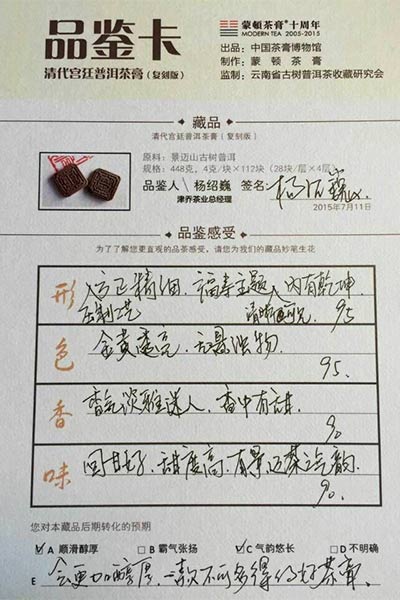 品鉴卡
清代宫廷普洱茶膏（复刻版）
蒙顿茶膏®十周年
MODERN TEA 2005-2015
出品：中国茶膏博物馆
制作：蒙顿茶膏
监制：云南省古树普洱茶收藏研究会
藏品
清代宫廷普洱茶膏（复刻版）
原料：景迈山古树普洱
规格：448克，4克/块×112块（28块/层×4层）
品鉴人 杨绍巍 签名：杨绍巍
津乔茶业总经理
2015年7月11日
品鉴感受
为了了解您更直观的品茶感受，请您为我们的藏品妙笔生花
形 方正精油，福寿主题，内有乾坤
压制工艺 清晰可见 95
色 金黄透亮，无悬浊物
95.
香 香气淡雅迷人，香中有甜
90
味 回甘好，甜度高，有景迈茶之气韵
90.
您对本藏品后期转化的预期
☑A 顺滑醇厚 □B 霸气张扬 ☑C 气韵悠长 □D 不明确
E 会更加醇厚，一款不可多得的好茶膏。